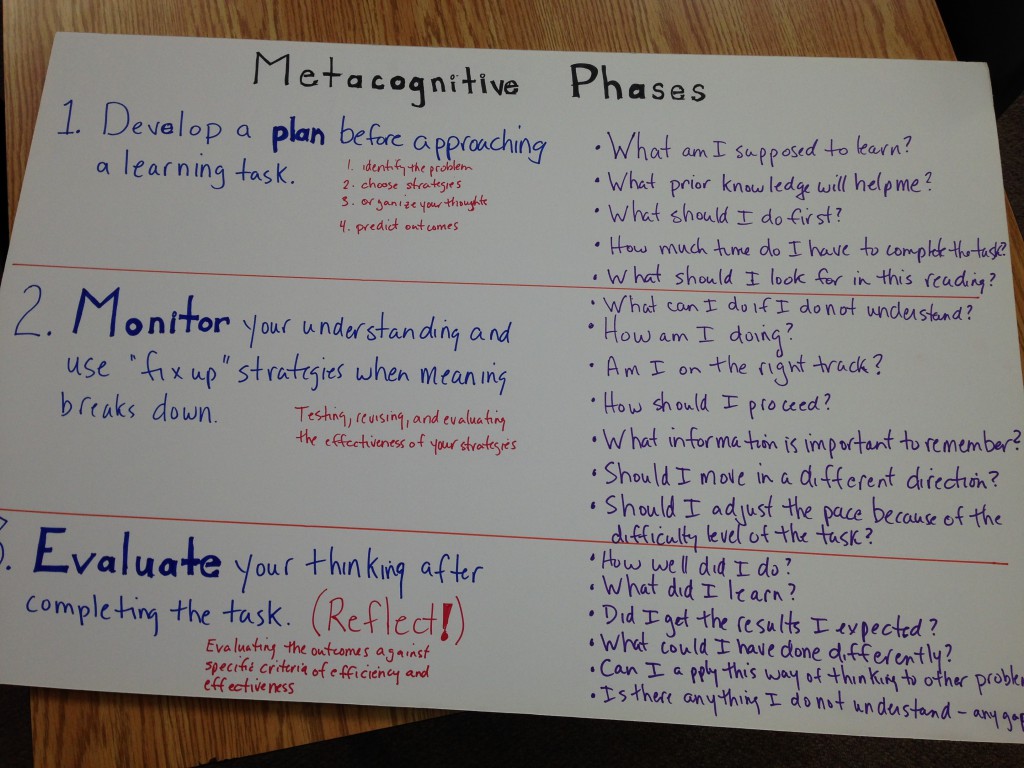 Metacognitive Phases
1. Develop a plan before approaching
a learning task.
1. identify the problem
2. choose strategies
3. organize your thoughts
4. predict outcomes
• What am I supposed to learn?
• What prior knowledge will help me?
• What should I do first?
• How much time do I have to complete the task?
• What should I look for in this reading?
2. Monitor your understanding and
use "fix up" strategies when meaning
breaks down.
Testing, revising, and evaluating
the effectiveness of your strategies
• What can I do if I do not understand?
• How am I doing?
• Am I on the right track?
• How should I proceed?
• What information is important to remember?
• Should I move in a different direction?
• Should I adjust the pace because of the
difficulty level of the task?
3. Evaluate your thinking after
completing the task. (Reflect!)
Evaluating the outcomes against
specific criteria of efficiency and
effectiveness
• How well did I do?
• What did I learn?
• Did I get the results I expected?
• What could I have done differently?
• Can I apply this way of thinking to other proble
• Is there anything I do not understand - any gap